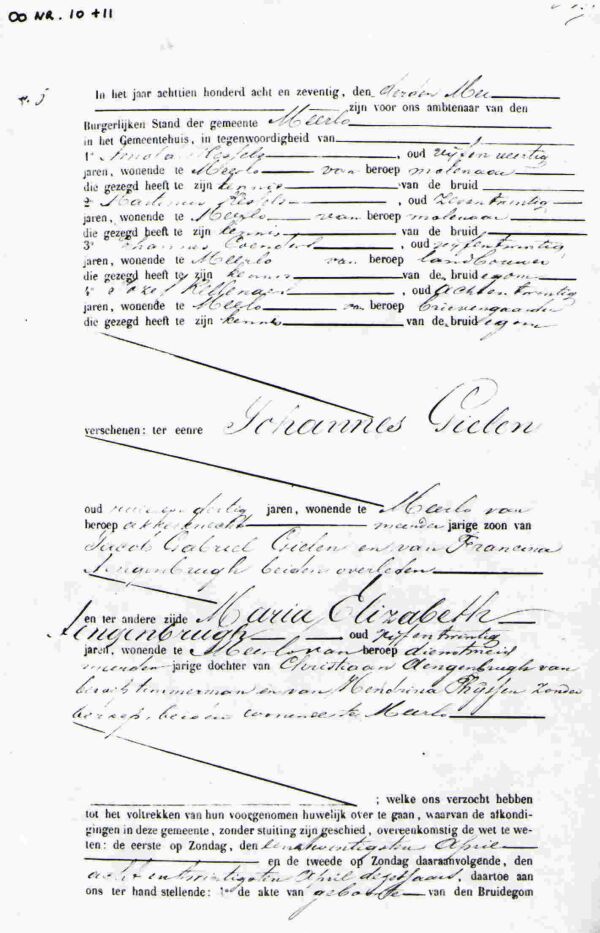 OO NR. 10 + 11
In het jaar achttien honderd acht en zeventig, den derden Mei
zijn voor ons ambtenaar van den
Burgerlijken Stand der gemeente Meerlo
in het Gemeentehuis, in tegenwoordigheid van
1e Arnold , oud vijfenveertig
jaren, wonende te Meerlo van beroep molenaar
die gezegd heeft te zijn kennis van de bruid
2e Martinus , oud zeventwintig
jaren, wonende te Meerlo van beroep molenaar
die gezegd heeft te zijn kennis van de bruid
3e Johannes Coenders , oud vijfentwintig
jaren, wonende te Meerlo van beroep landbouwer
die gezegd heeft te zijn kennis van de bruidegom
4e Jozef , oud achtentwintig
jaren, wonende te Meerlo van beroep brievengaarder
die gezegd heeft te zijn kennis van de bruidegom
verschenen: ter eenre Johannes Gielen
oud dertig jaren, wonende te Meerlo van
beroep akkersknecht meerder jarige zoon van
Jacob Gabriel Gielen en van Francina
Lengenbrugh beiden overleden
en ter andere zijde Maria Elizabeth
Lengenbrugh oud vijfentwintig
jaren, wonende te Meerlo van beroep dienstmeid
meerder jarige dochter van Christiaan Lengenbrugh van
beroep timmerman en van Hendrina Thijssen zonder
beroep, beiden wonende te Meerlo
; welke ons verzocht hebben
tot het voltrekken van hun voorgenomen huwelijk over te gaan, waarvan de afkondi-
gingen in deze gemeente, zonder stuiting zijn geschied, overeenkomstig de wet te we-
ten: de eerste op Zondag, den eenentwintigsten April
en de tweede op Zondag daaraanvolgende, den
achtentwintigsten April dezes jaars, daartoe aan
ons ter hand stellende: 1e de akte van geboorte van den Bruidegom